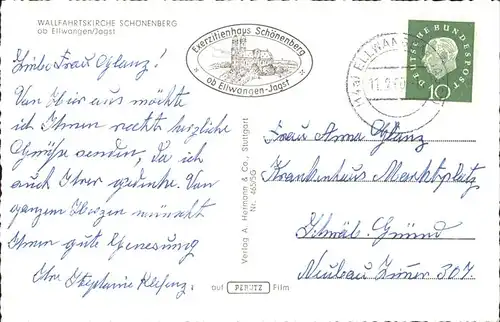 WALLFAHRTSKIRCHE SCHÖNENBERG
ob Ellwangen/Jagst
Liebe Frau Oglanz!
Von hier aus möchte
ich Ihnen recht herzliche
Grüße senden, da ich
auch Ihrer gedenke. Von
ganzem Herzen wünscht
Ihnen gute Genesung
Ihre Stephanie
Exerzitienhaus Schönenberg
ob Ellwangen-Jagst
(14a) ELLWA
11.9.60
DEUTSCHE BUNDESPOST
10
Verlag A. Hermann & Co., Stuttgart
Nr. 465/5G
auf PERUTZ Film
Frau Anna Oglanz
Krankenhaus Marktplatz
Schwäb. Gmünd
Neubau Zimer 307